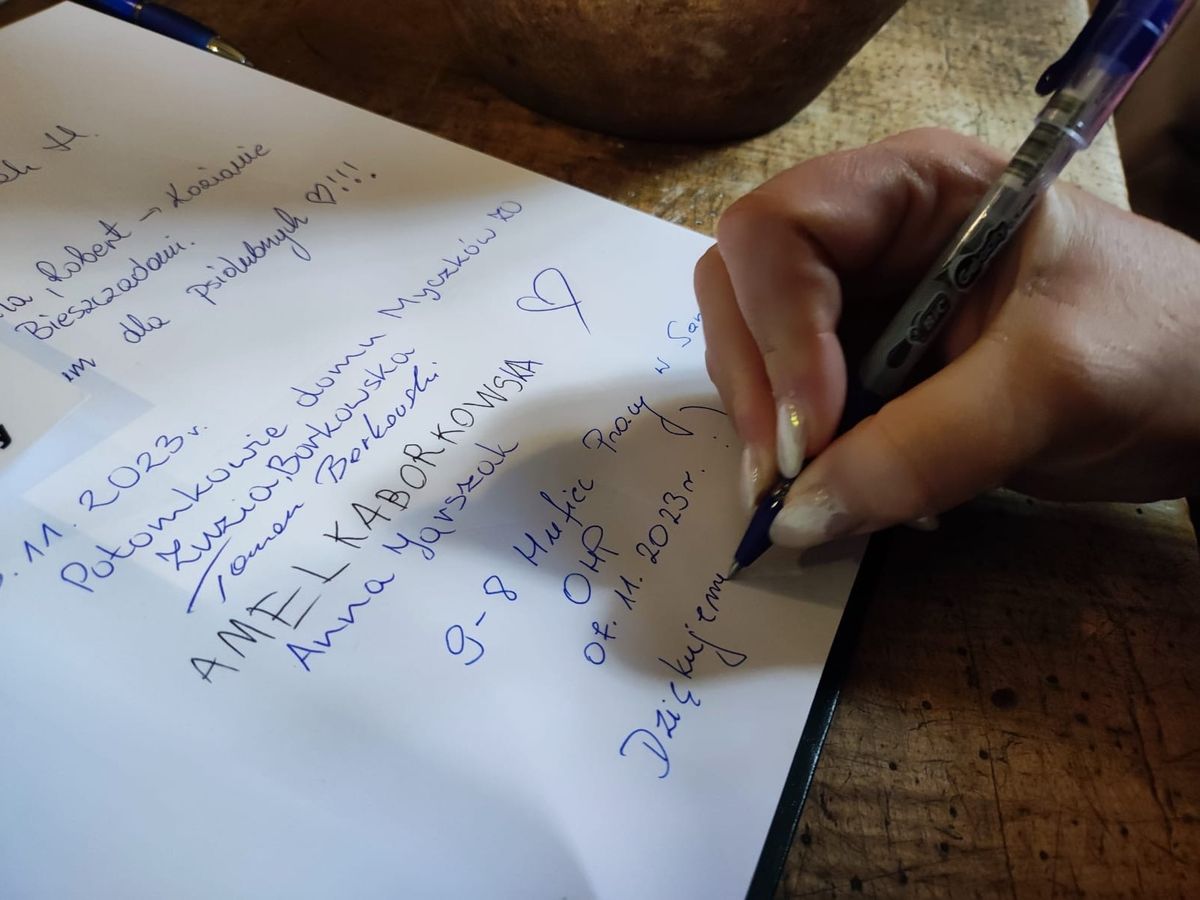 Robert → Kocianie
Bieszczadami.
dla psiolubnych ♡!!!
.11.2023r.
Potomkowie domu Myczków 20
Zuzia, Borkowska
Tomon Borkowski
AMELKA BORKOWSKA ♡
Anna Jarszak
9-8 Hufiec Pracy w San
OHP
07.11.2023r. :)
Dziękujemy
BIC